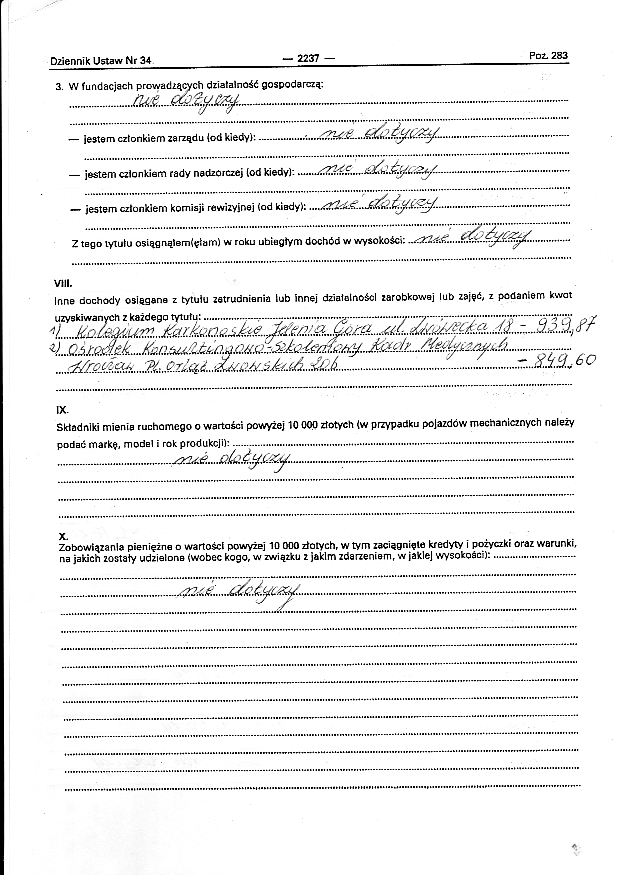 Dziennik Ustaw Nr 34 — 2237 — Poz. 283
3. W fundacjach prowadzących działalność gospodarczą:
nie dotyczy
— jestem członkiem zarządu (od kiedy): nie dotyczy
— jestem członkiem rady nadzorczej (od kiedy): nie dotyczy
— jestem członkiem komisji rewizyjnej (od kiedy): nie dotyczy
Z tego tytułu osiągnąłem(ęłam) w roku ubiegłym dochód w wysokości: nie dotyczy
VIII.
Inne dochody osiągane z tytułu zatrudnienia lub innej działalności zarobkowej lub zajęć, z podaniem kwot
uzyskiwanych z każdego tytułu:
1) Kolegium Karkonoskie Jelenia Góra ul. Lwówecka 18 - 939,87
2) Ośrodek Konsultingowo-Szkoleniowy Kadr Medycznych
Wrocław Pl. Orląt Lwowskich 20b - 849,60
IX.
Składniki mienia ruchomego o wartości powyżej 10 000 złotych (w przypadku pojazdów mechanicznych należy
podać markę, model i rok produkcji):
nie dotyczy
X.
Zobowiązania pieniężne o wartości powyżej 10 000 złotych, w tym zaciągnięte kredyty i pożyczki oraz warunki,
na jakich zostały udzielone (wobec kogo, w związku z jakim zdarzeniem, w jakiej wysokości):
nie dotyczy